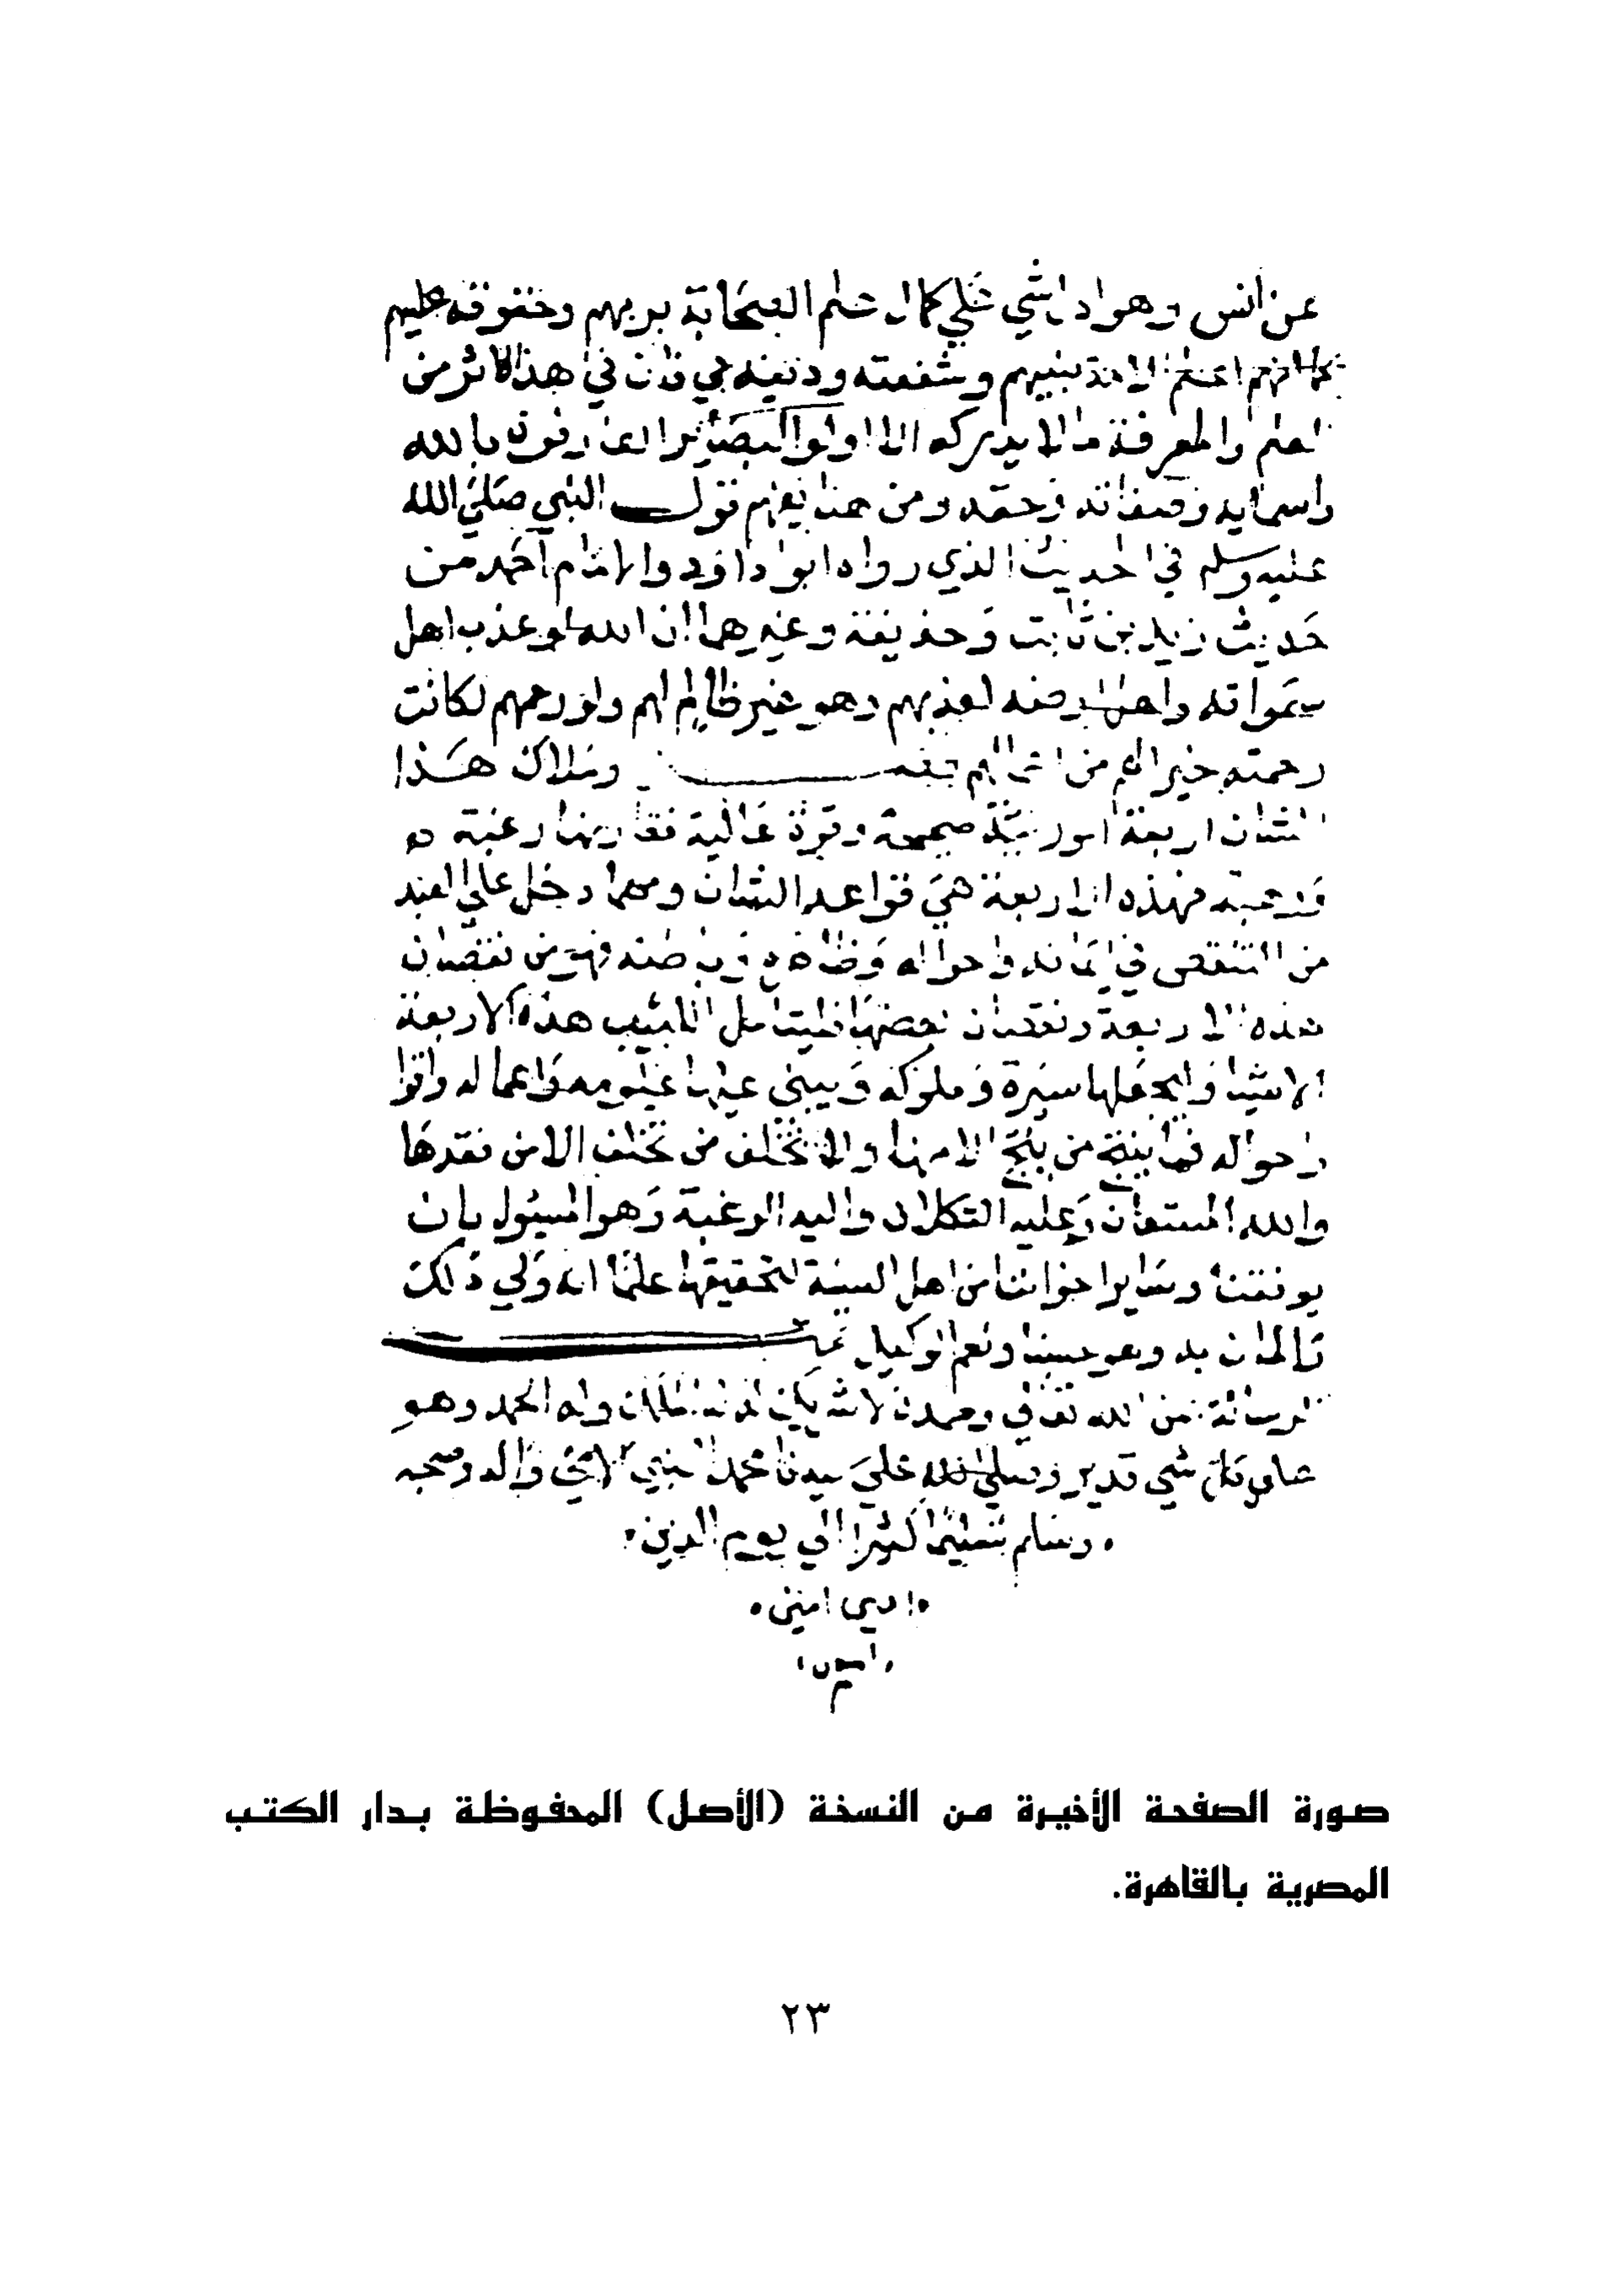 عن انس وهو ادل شي علي كمال علم الصحابة بربهم وحقوقه عليهم
كما انهم اعلم الامة بنبيهم وسننه ودينه فان في هذا الاثر من
العلم والمعرفة ما لا يدركه الا اولوا البصائر العارفون بالله
واسمايه وصفاته وحقه ومن هنا يفهم قول النبي صلي الله
عليه وسلم في الحديث الذي رواه ابو داود والامام احمد من
حديث زيد بن ثابت وحذيفة وغيرهما ان الله لو عذب اهل
سمواته واهل ارضه لعذبهم وهو غير ظالم لهم ولو رحمهم لكانت
رحمته خيرا لهم من اعمالهم وملاك هذا
الشان اربعة امور نية صحيحة وقوة عالية تقارنهما رغبة و
ورهبة فهذه الاربعة هي قواعد الشان ومهما دخل علي العبد
من النقص في ايمانه واحواله وظاهره وباطنه فهو من نقصان
هذه الاربعة ونقصان بعضها فليتامل اللبيب هذه الاربعة
الاشيا وليجعلها سيره وسلوكه ويبني عليها علومه واعماله واقوا
واحواله فما نتج من نتج الا منها ولا تخلف من تخلف الا من فقدها
والله المستعان وعليه التكلان واليه الرغبة وهو المسئول بان
يوفقنا وساير اخواننا من اهل السنة لتحقيقها علما انه ولي ذلك
والمان به وهو حسبنا ونعم الوكيل تمت
الرسالة من الله تعالى وحده لا شريك له له الملك وله الحمد وهو
علي كل شي قدير وصلي الله علي سيدنا محمد النبي الامي واله وصحبه
وسلم تسليما كثيرا الي يوم الدين
امين
صورة الصفحة الأخيرة من النسخة (الأصل) المحفوظة بدار الكتب
المصرية بالقاهرة.
٢٣